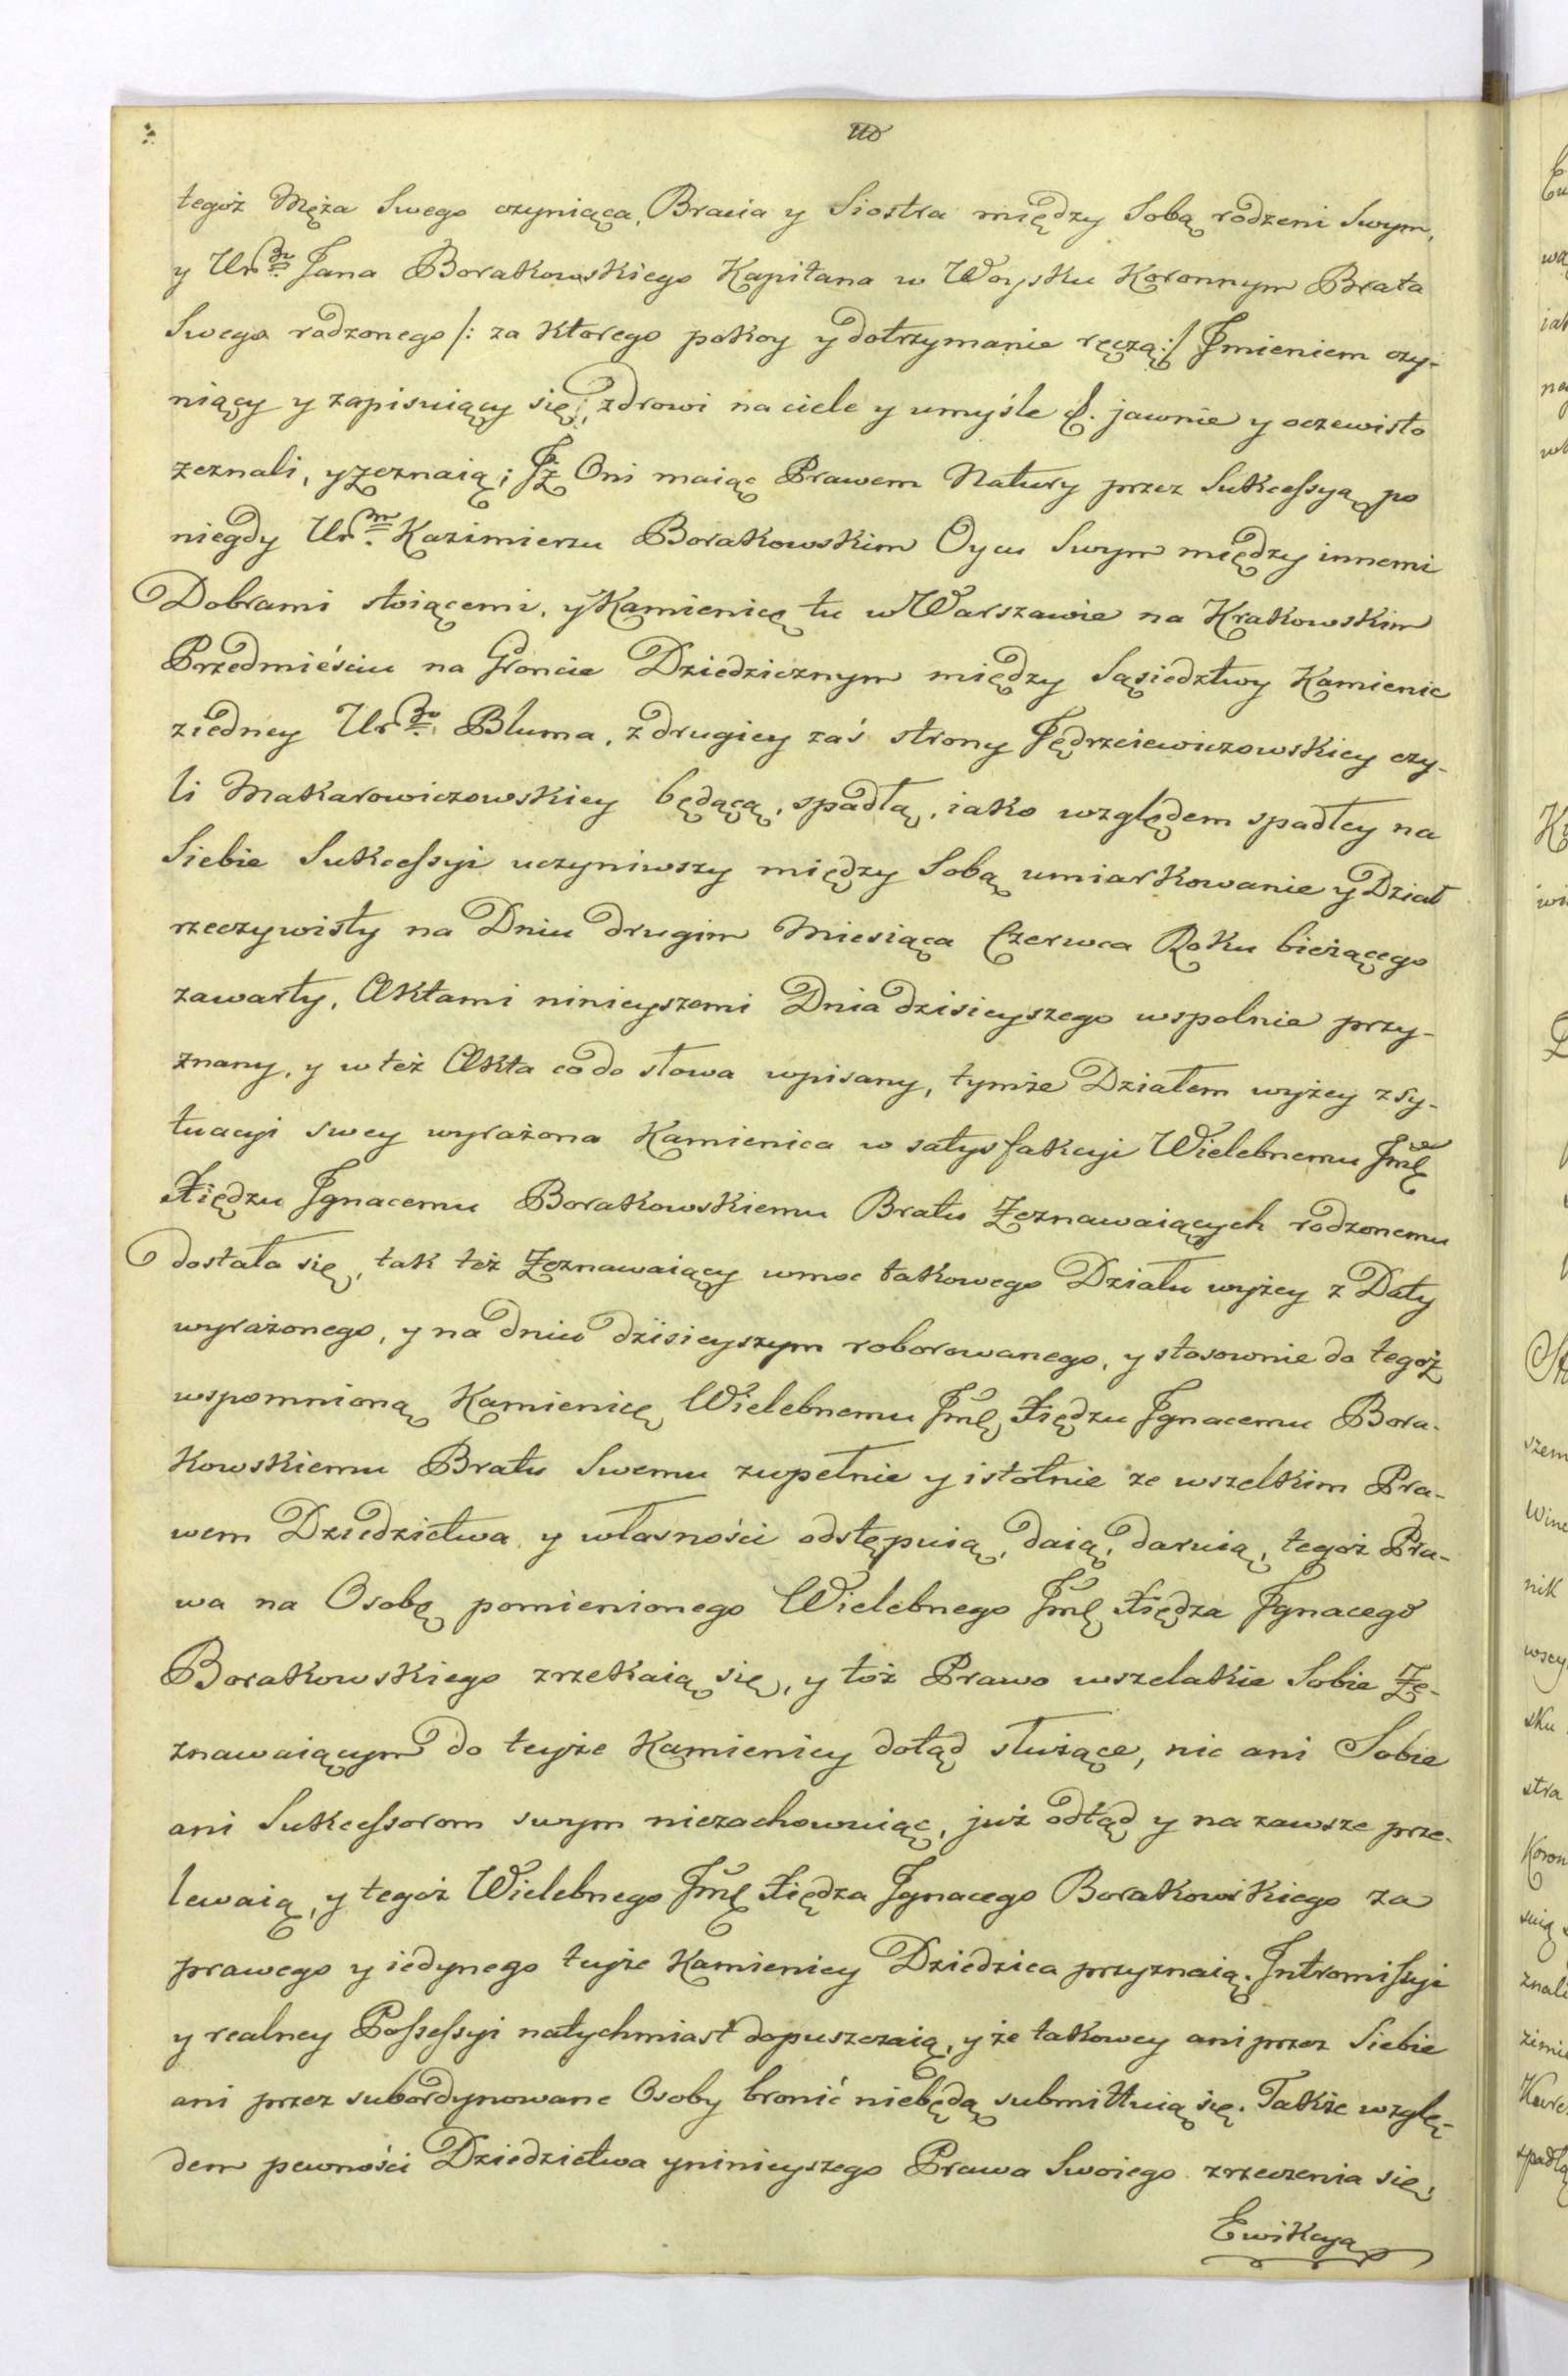 tegoż Męża Swego czyniąca, Bracia y Siostra między Sobą rodzeni Swym,
y Ur͞go Jana Borakowskiego Kapitana w Woysku Koronnym Brata
Swego rodzonego /: za ktorego pokoy y dotrzymanie ręczą :/ Jmieniem czy-
niący y zapisuiący się, zdrowi na ciele y umyśle &. jawnie y oczewisto
zeznali, y zeznaią; Jż Oni maiąc Prawem Natury przez Sukcessyą po
niegdy Ur͞m Kazimierzu Borakowskim Oycu Swym między innemi
Dobrami stoiącemi, y Kamienicę tu w Warszawie na Krakowskim
Przedmieściu na Groncie Dziedzicznym między Sąsiedztwy Kamienic
z iedney Ur͞go Bluma, z drugiey zaś strony Jędrzeiewiczowskiey czy-
li Makarowiczowskiey będącą, spadłą, iako względem spadłey na
Siebie Sukcessyi uczyniwszy między Sobą umiarkowanie y Dział
rzeczywisty na Dniu drugim Miesiąca Czerwca Roku bieżącego
zawarty, Aktami ninieyszemi Dnia dzisieyszego wspolnie przy-
znany, y w też Akta co do słowa wpisany, tymże Działem wyżey z sy-
tuacyi swey wyrażona Kamienica w satysfakcyi Wielebnemu Jmć
Xiędzu Jgnacemu Borakowskiemu Bratu Zeznawaiących rodzonemu
dostała się, tak też Zeznawaiący w moc takowego Działu wyżey z Daty
wyrażonego, y na dniu dzisieyszym roborowanego, y stosownie do tegoż
wspomnioną Kamienicę Wielebnemu Jmć Xiędzu Jgnacemu Bora-
kowskiemu Bratu Swemu zupełnie y istotnie ze wszelkim Pra-
wem Dziedzictwa y własności odstępuią, daią, daruią, tegoż Pra-
wa na Osobę pomienionego Wielebnego Jmć Xiędza Jgnacego
Borakowskiego zrzekaią się, y toż Prawo wszelakie Sobie Ze-
znawaiącym do teyże Kamienicy dotąd służące, nic ani Sobie
ani Sukcessorom swym niezachowuiąc, już odtąd y na zawsze prze-
lewaią, y tegoż Wielebnego Jmć Xiędza Jgnacego Borakowskiego za
prawego y iedynego teyże Kamienicy Dziedzica przyznaią. Jntromissyi
y realney Possessyi natychmiast dopuszczaią, y że takowey ani przez Siebie
ani przez subordynowane Osoby bronić niebędą submittuią się. Także wzglę-
dem pewności Dziedzictwa y ninieyszego Prawa Swoiego zrzeczenia się,
Ewikcyą